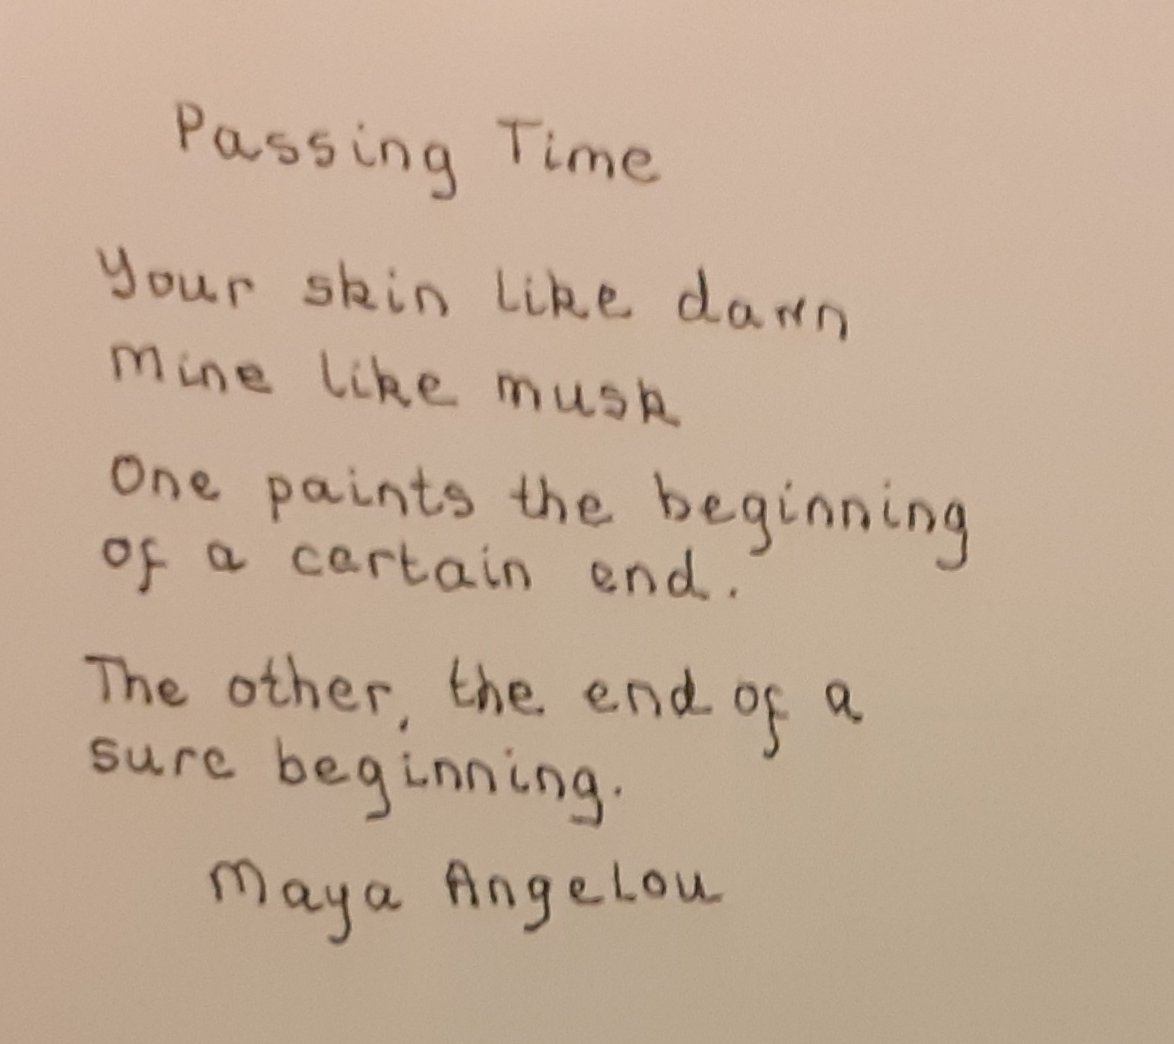 Passing Time
Your skin like dawn
Mine like musk
One paints the beginning
of a certain end.
The other, the end of a
sure beginning.
Maya Angelou